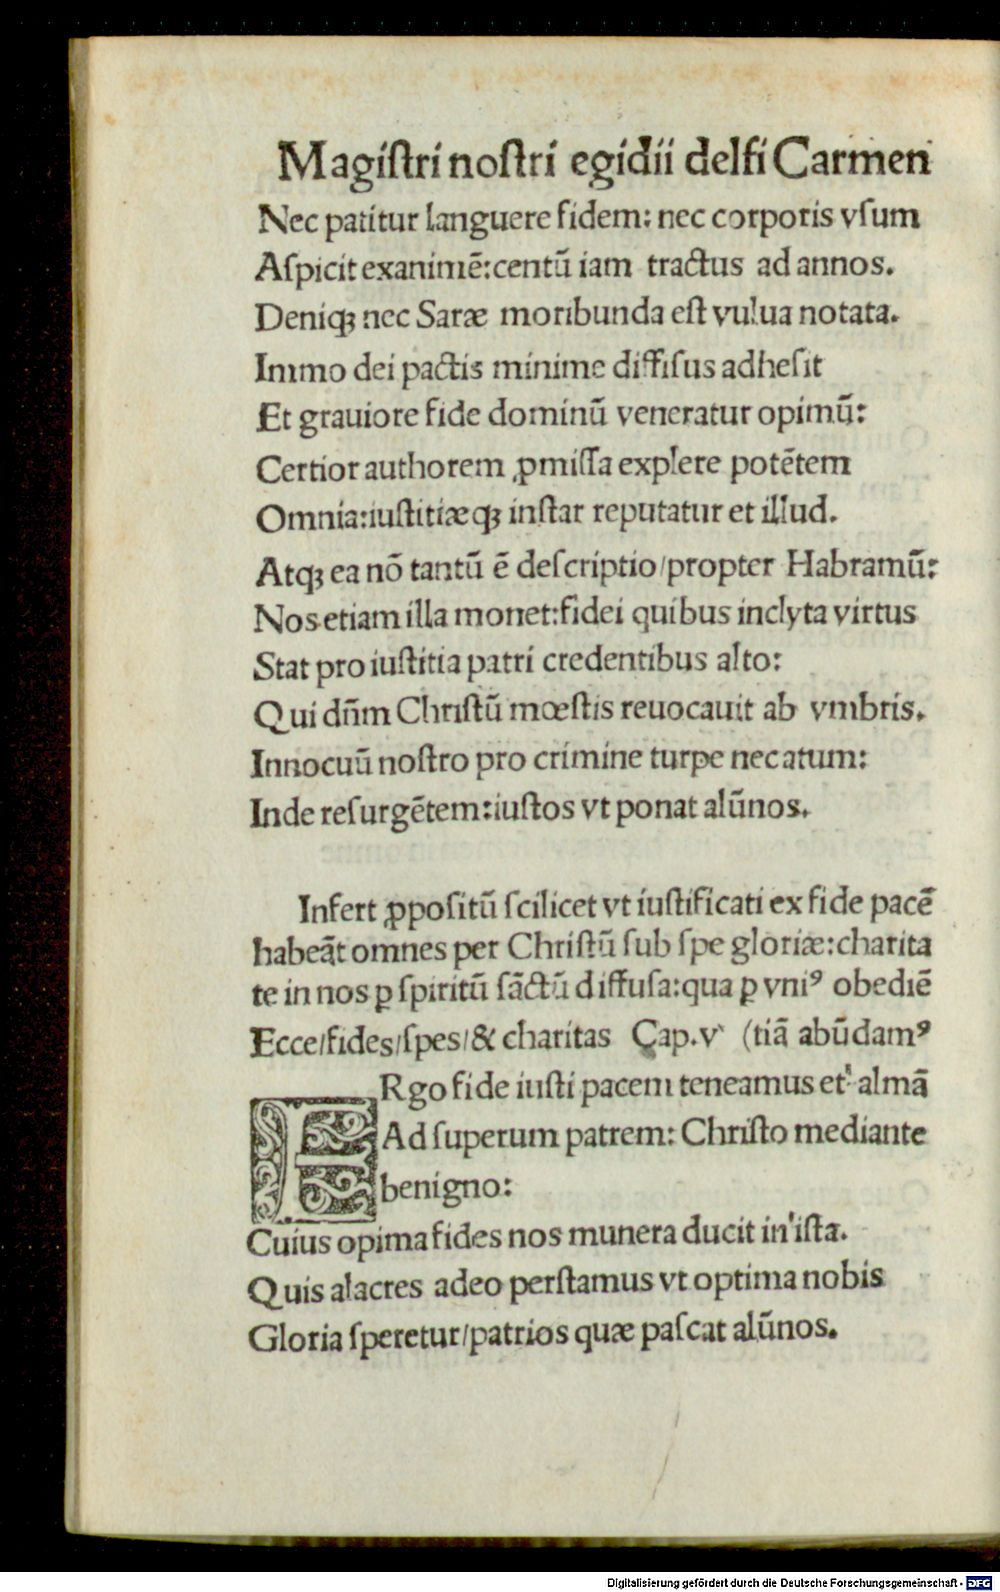 Magiſtri noſtri egidii delfi Carmen
Nec patitur languere fidem: nec corporis vſum
Aſpicit exanimẽ: centũ iam tractus ad annos.
Deniqꝫ nec Saræ moribunda eſt vulua notata.
Immo dei pactis minime diffiſus adheſit
Et grauiore fide dominũ veneratur opimũ:
Certior authorem ꝓmiſſa explere potẽtem
Omnia: iuſtitiæqꝫ inſtar reputatur et illud.
Atqꝫ ea nõ tantũ ẽ deſcriptio/propter Habramũ:
Nos etiam illa monet: fidei quibus inclyta virtus
Stat pro iuſtitia patri credentibus alto:
Qui dñm Chriſtũ mœſtis reuocauit ab vmbris.
Innocuũ noſtro pro crimine turpe necatum:
Inde reſurgẽtem: iuſtos vt ponat alũnos.
Infert ꝓpoſitũ ſcilicet vt iuſtificati ex fide pacẽ
habeãt omnes per Chriſtũ ſub ſpe gloriæ: charita
te in nos ꝑ ſpiritũ ſãctũ diffuſa: qua ꝑ vniꝰ obediẽ
Ecce/fides/ſpes/& charitas Cap.v (tiã abũdamꝰ
ERgo fide iuſti pacem teneamus et almã
Ad ſuperum patrem: Chriſto mediante
benigno:
Cuius opima fides nos munera ducit in iſta.
Quis alacres adeo perſtamus vt optima nobis
Gloria ſperetur/patrios quæ paſcat alũnos.
Digitalisierung gefördert durch die Deutsche Forschungsgemeinschaft - DFG